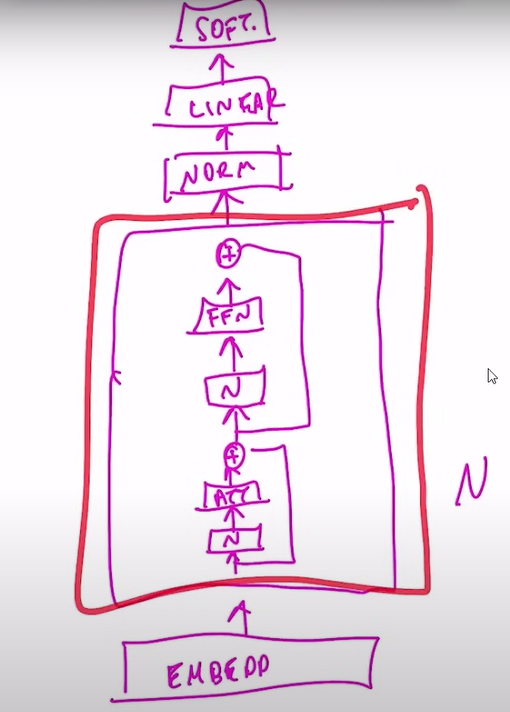 SOFT.
LINEAR
NORM
+
FFN
N
+
ATT
N
N
EMBEDD